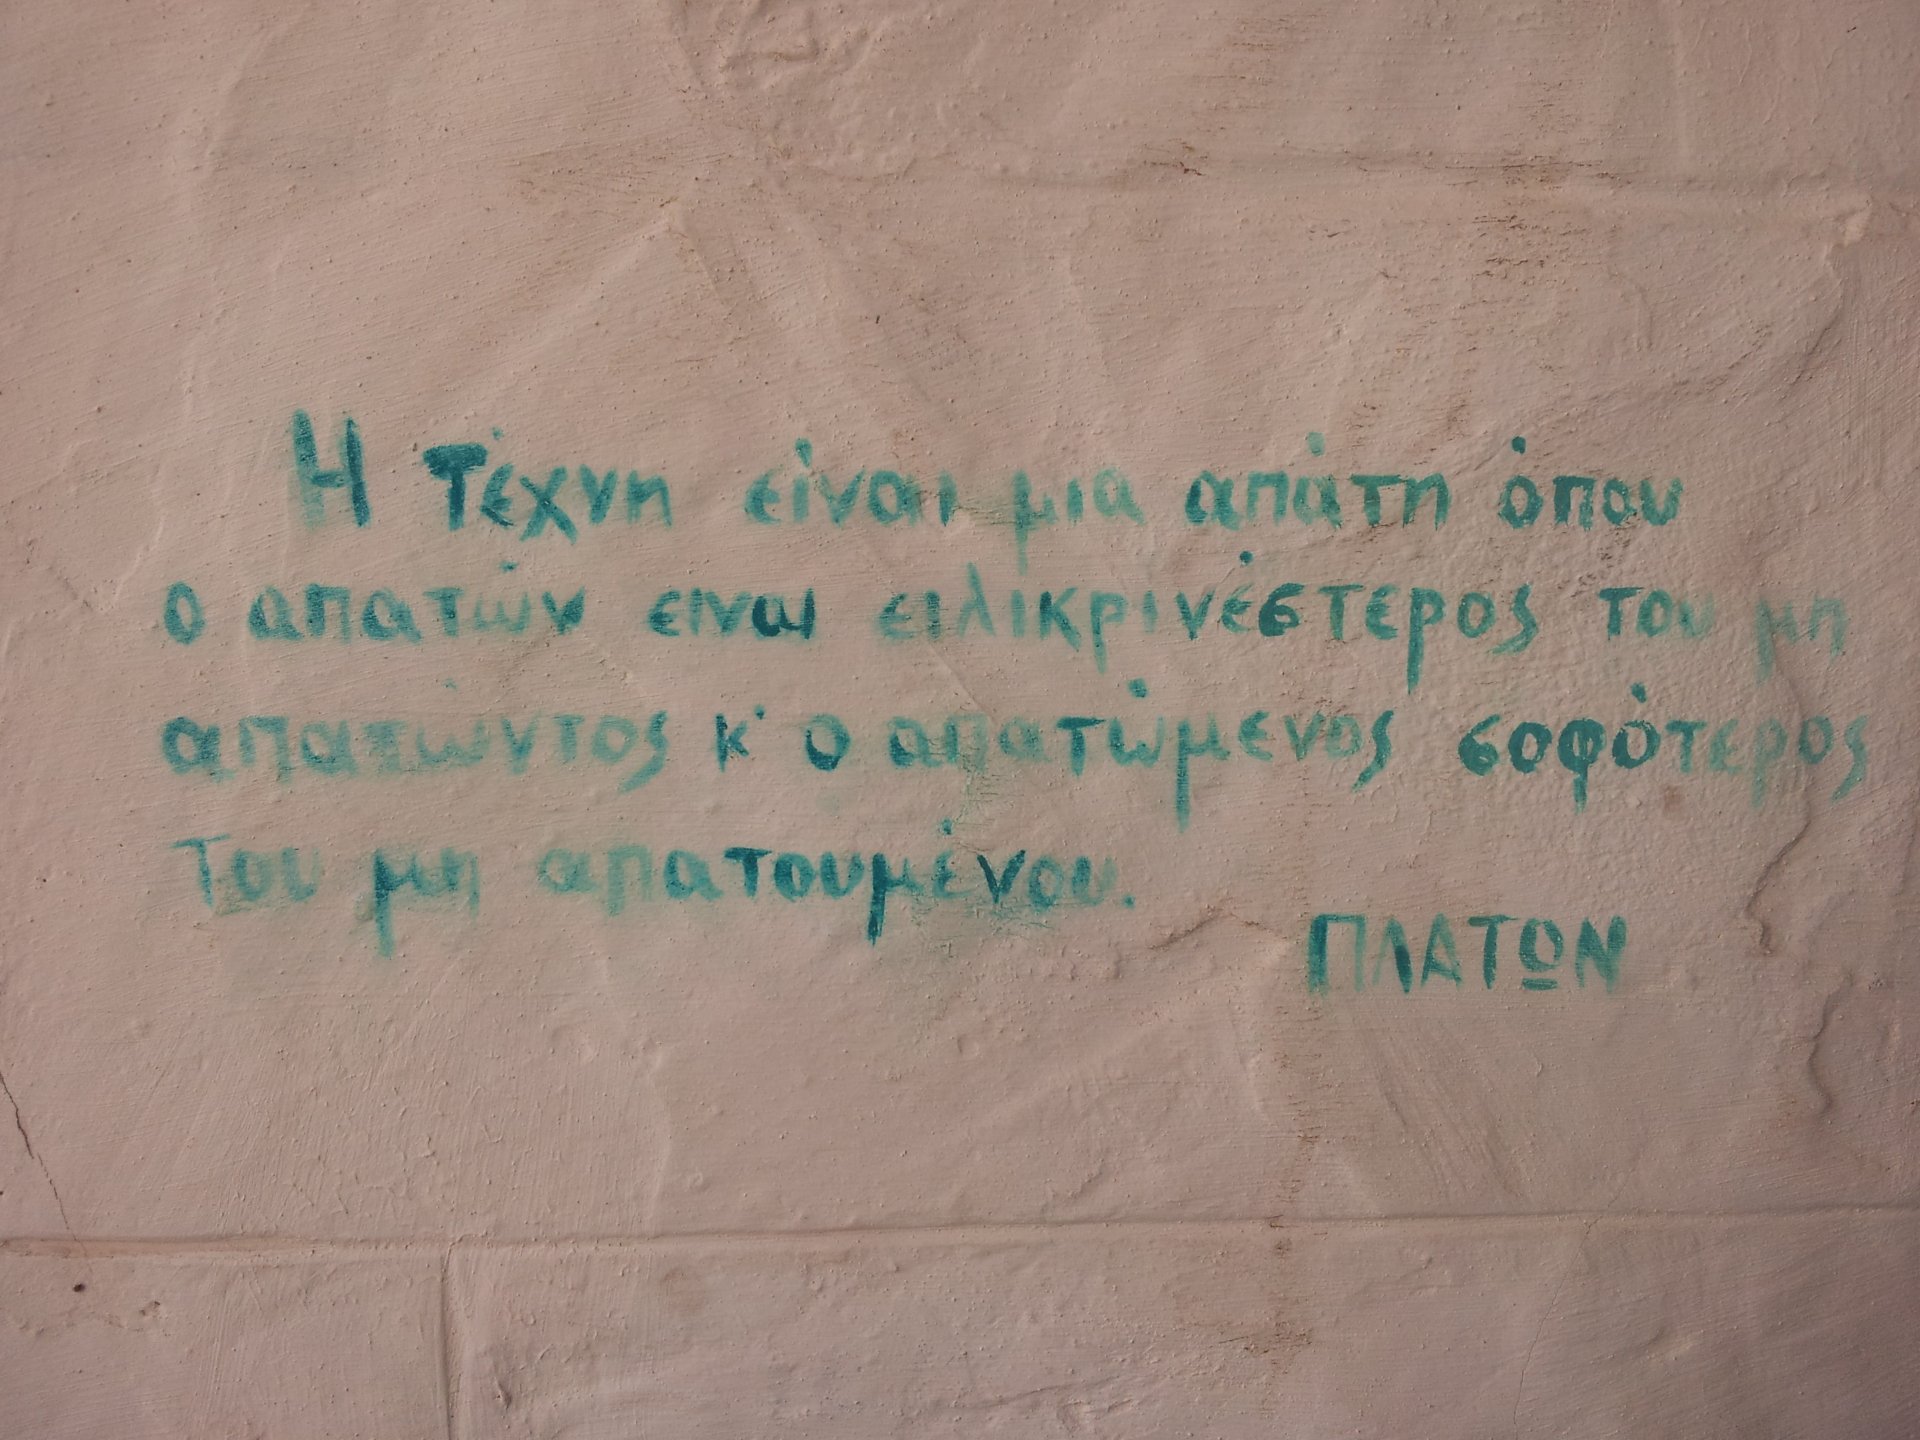 Η Τέχνη είναι μια απάτη όπου
ο απατών ειναι ειλικρινέστερος του μη
απατώντος κ' ο απατώμενος σοφότερος
Του μη απατουμένου.
ΠΛΑΤΩΝ